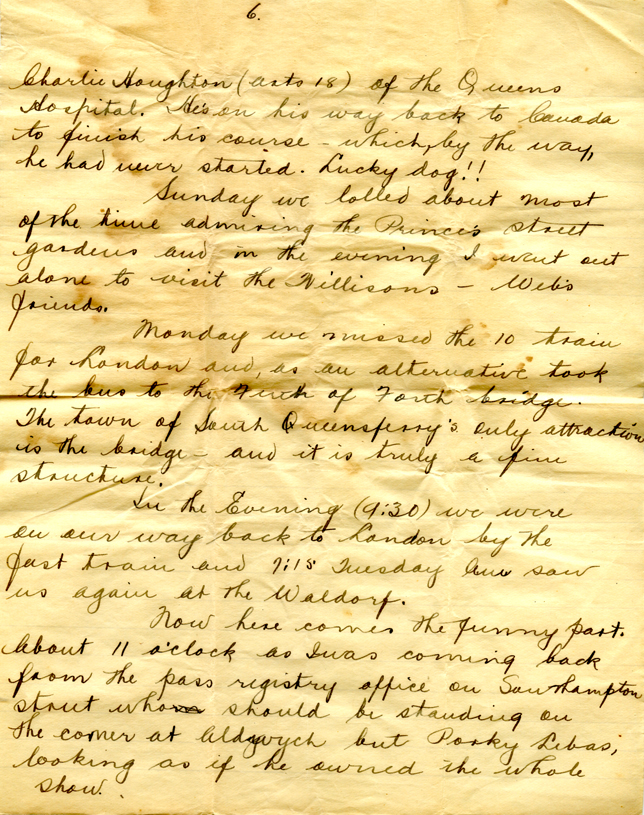 6.
Charlie Houghton (arts 18) of the Queens
Hospital. He's on his way back to Canada
to finish his course - which, by the way,
he had never started. Lucky dog!!
Sunday we lolled about most
of the time admiring the Princes street
gardens and in the evening I went out
alone to visit the Willisons - Web's
friends.
Monday we missed the 10 train
for London and, as an alternative took
the bus to the Firth of Forth bridge.
The town of South Queensferry's only attraction
is the bridge - and it is truly a fine
structure.
In the Evening (9:30) we were
on our way back to London by the
fast train and 7:15 Tuesday Am saw
us again at the Waldorf.
Now here comes the funny part.
About 11 o'clock as I was coming back
from the pass registry office on Southampton
street who should be standing on
the corner at Aldwych but Porky Lebas,
looking as if he owned the whole
show.